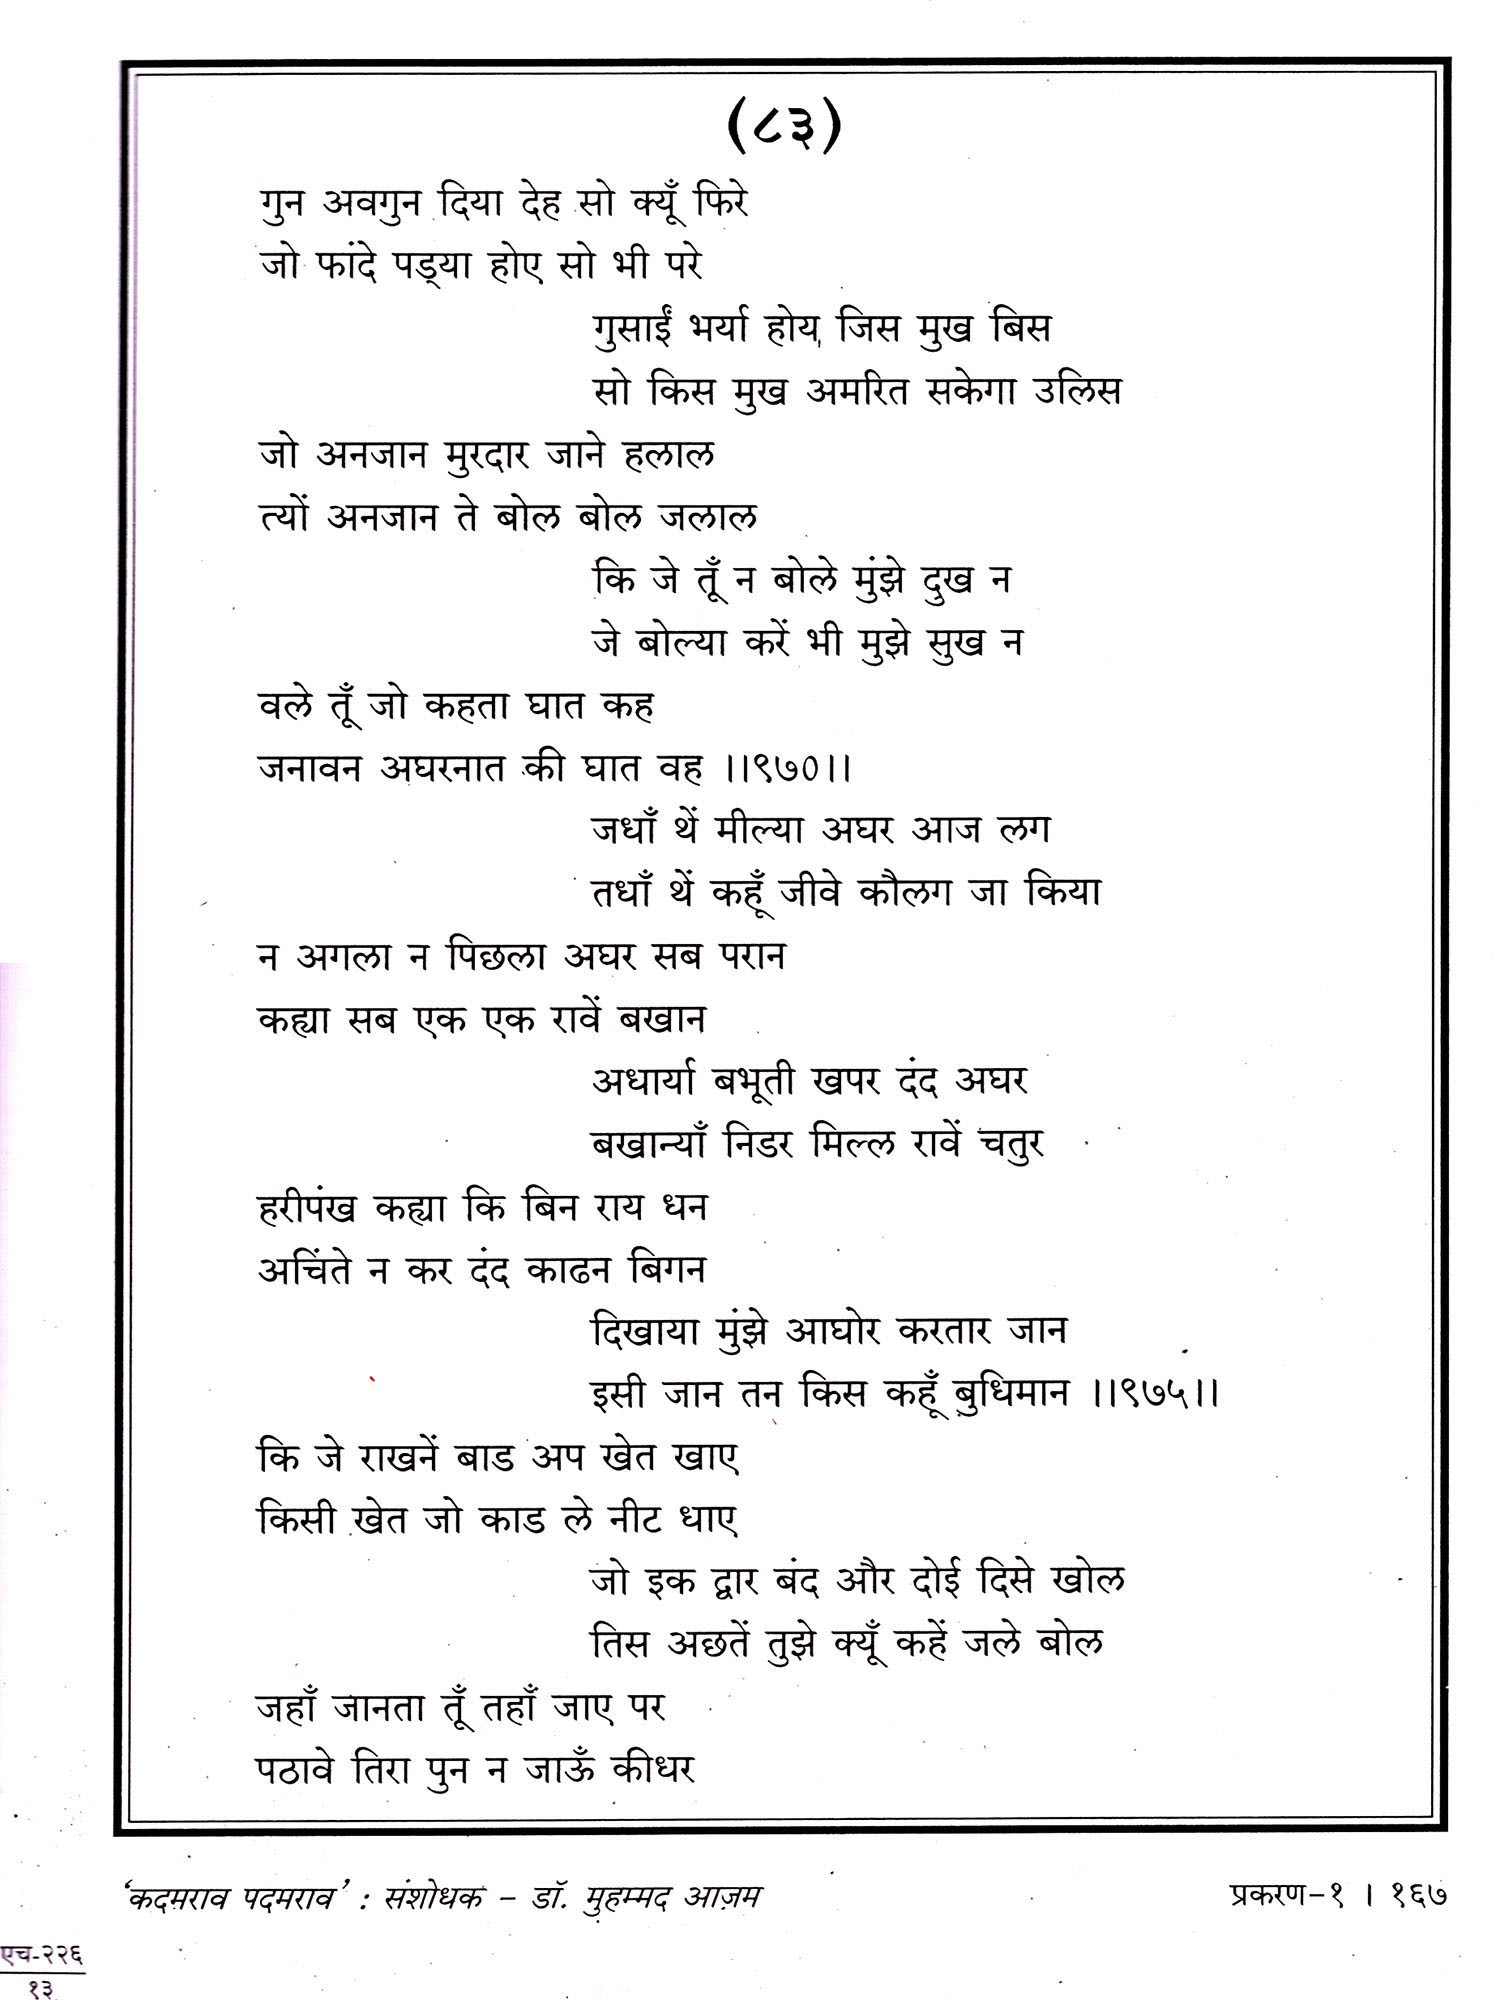 (८३)
गुन अवगुन दिया देह सो क्यूँ फिरे
जो फांदे पड्या होए सो भी परे
गुसाईं भर्या होय, जिस मुख बिस
सो किस मुख अमरित सकेगा उलिस
जो अनजान मुरदार जाने हलाल
त्यों अनजान ते बोल बोल जलाल
कि जे तूँ न बोले मुंझे दुख न
जे बोल्या करें भी मुझे सुख न
वले तूँ जो कहता घात कह
जनावन अघरनात की घात वह ।।९७०।।
जधाँ थें मील्या अघर आज लग
तधाँ थें कहूँ जीवे कौलग जा किया
न अगला न पिछला अघर सब परान
कह्या सब एक एक रावें बखान
अधार्या बभूती खपर दंद अघर
बखान्याँ निडर मिल्ल रावें चतुर
हरीपंख कह्या कि बिन राय धन
अचिंते न कर दंद काढन बिगन
दिखाया मुंझे आघोर करतार जान
इसी जान तन किस कहूँ बुधिमान ।।९७५।।
कि जे राखनें बाड अप खेत खाए
किसी खेत जो काड ले नीट धाए
जो इक द्वार बंद और दोई दिसे खोल
तिस अछतें तुझे क्यूँ कहें जले बोल
जहाँ जानता तूँ तहाँ जाए पर
पठावे तिरा पुन न जाऊँ कीधर
‘कदमराव पदमराव’ : संशोधक – डॉ. मुहम्मद आज़म
प्रकरण-१ । १६७
एच-२२६
१३